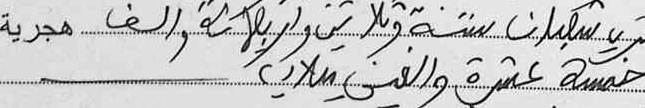 شعبان سنة وثلاثين واربعمائة والف هجرية
خمسة عشرة والفين ميلادي